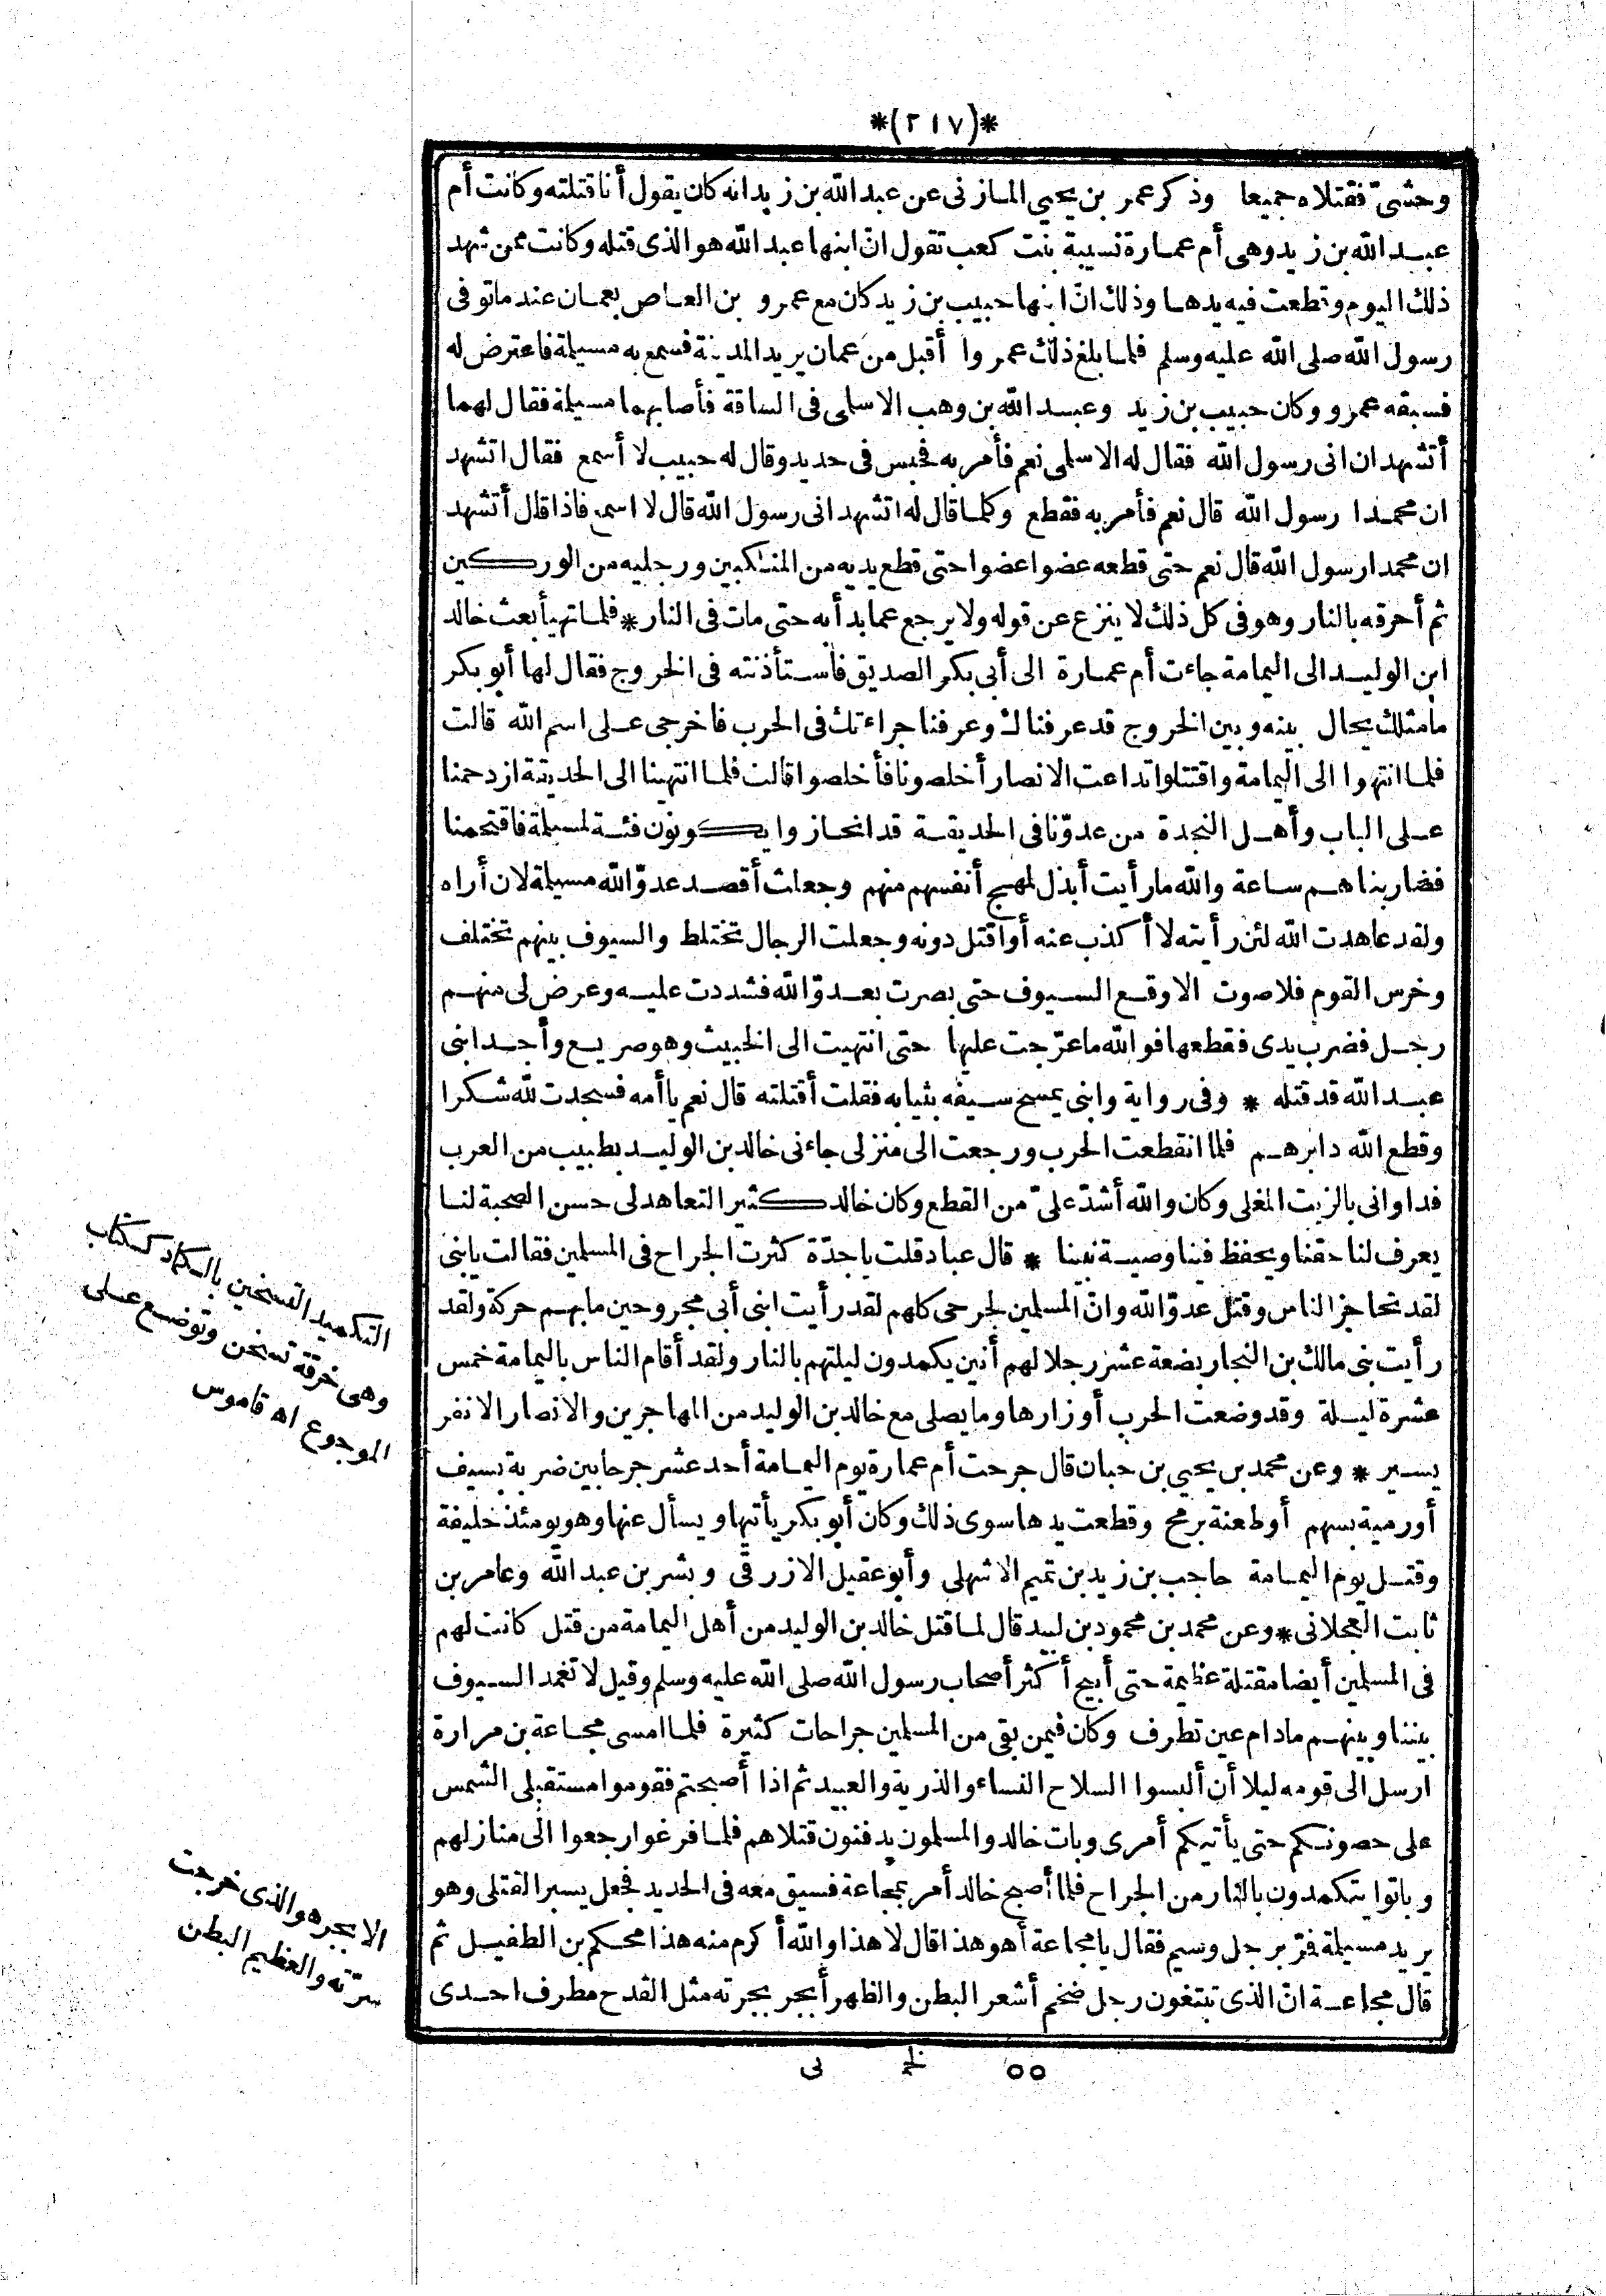 *(٢١٧)*
وحشىّ فقتلاه جميعا وذكر عمر بن يحيى المازنى عن عبد الله بن زيد انه كان يقول أنا قتلته وكانت أم
عبد الله بن زيد وهى أم عمارة نسيبة بنت كعب تقول انّ ابنها عبد الله هو الذى قتله وكانت ممن شهد
ذلك اليوم وقطعت فيه يدها وذلك انّ ابنها حبيب بن زيد كان مع عمرو بن العاص بعمان عند ما توفى
رسول الله صلى الله عليه وسلم فلما بلغ ذلك عمروا أقبل من عمان يريد المدينة فسمع به مسيلمة فاعترض له
فسبقه عمرو وكان حبيب بن زيد وعبد الله بن وهب الاسلمى فى الساقة فأصابهما مسيلمة فقال لهما
أتشهد ان انى رسول الله فقال له الاسلمى نعم فأمر به فحبس فى حديد وقال له حبيب لا أسمع فقال اتشهد
ان محمدا رسول الله قال نعم فأمر به فقطع وكلما قال له اتشهد انى رسول الله قال لا اسمع فاذا قال أتشهد
ان محمدا رسول الله قال نعم حتى قطعه عضوا عضوا حتى قطع يديه من المنكبين ورجليه من الوركين
ثم أحرقه بالنار وهو فى كل ذلك لا ينزع عن قوله ولا يرجع عما بدأ به حتى مات فى النار * فلما تهيأ بعث خالد
ابن الوليد الى اليمامة جاءت أم عمارة الى أبى بكر الصديق فأستأذنته فى الخروج فقال لها أبو بكر
ما مثلك يحال بينه وبين الخروج قد عرفناك وعرفنا جراءتك فى الحرب فاخرجى على اسم الله قالت
فلما انتهوا الى اليمامة واقتتلوا تداعت الانصار أخلصونا فأخلصوا قالت فلما انتهينا الى الحديقة ازدحمنا
على الباب وأهل النجدة من عدوّنا فى الحديقة قد انحازوا يكونون فئة لمسيلمة فاقتحمنا
فضاربناهم ساعة والله ما رأيت أبذل لمهج أنفسهم منهم وجعلت أقصد عدوّ الله مسيلمة لان أراه
ولقد عاهدت الله لئن رأيته لا أكذب عنه أو اقتل دونه وجعلت الرجال تختلط والسيوف بينهم تختلف
وخرس القوم فلا صوت الا وقع السيوف حتى بصرت بعدوّ الله فشددت عليه وعرض لى منهم
رجل فضرب يدى فقطعها فو الله ما عرّجت عليها حتى انتهيت الى الخبيث وهو صريع وأجد ابنى
عبد الله قد قتله * وفى رواية وابنى يمسح سيفه بثيابه فقلت أقتلته قال نعم يا أمه فسجدت لله شكرا
وقطع الله دابرهم فلما انقطعت الحرب ورجعت الى منزلى جاءنى خالد بن الوليد بطبيب من العرب
فداوانى بالزيت المغلى وكان والله أشدّ علىّ من القطع وكان خالد كثير التعاهد لى حسن الصحبة لنا
يعرف لنا حقنا ويحفظ فينا وصية نبينا * قال عباد قلت يا جدّة كثرت الجراح فى المسلمين فقالت يا بنى
لقد تحاجز الناس وقتل عدوّ الله وانّ المسلمين لجرحى كلهم لقد رأيت ابنى أبى مجروحين ما بهم حركة ولقد
رأيت بنى مالك بن النجار بضعة عشر رجلا لهم أنين يكمدون ليلتهم بالنار ولقد أقام الناس باليمامة خمس
عشرة ليلة وقد وضعت الحرب أوزارها وما يصلى مع خالد بن الوليد من المهاجرين والانصار الا نفر
يسير * وعن محمد بن يحيى بن حبان قال جرحت أم عمارة يوم اليمامة أحد عشر جرحا بين ضربة بسيف
أو رمية بسهم أو طعنة برمح وقطعت يدها سوى ذلك وكان أبو بكر يأتيها ويسأل عنها وهو يومئذ خليفة
وقتل يوم اليمامة حاجب بن زيد بن تميم الاشهلى وأبو عقيل الازرقى وبشر بن عبد الله وعامر بن
ثابت العجلانى * وعن محمد بن محمود بن لبيد قال لما قتل خالد بن الوليد من أهل اليمامة من قتل كانت لهم
فى المسلمين أيضا مقتلة عظيمة حتى أبيح أكثر أصحاب رسول الله صلى الله عليه وسلم وقيل لا تغمد السيوف
بيننا وبينهم مادام عين تطرف وكان فيمن بقى من المسلمين جراحات كثيرة فلما امسى مجاعة بن مرارة
ارسل الى قومه ليلا أن ألبسوا السلاح النساء والذرية والعبيد ثم اذا أصبحتم فقوموا مستقبلى الشمس
على حصونكم حتى يأتيكم أمرى وبات خالد والمسلمون يدفنون قتلاهم فلما فرغوا رجعوا الى منازلهم
وباتوا يتكمدون بالنار من الجراح فلما أصبح خالد أمر بمجاعة فسيق معه فى الحديد فجعل يسبر القتلى وهو
يريد مسيلمة فمرّ برجل وسيم فقال يا مجاعة أهو هذا قال لا هذا والله أكرم منه هذا محكم بن الطفيل ثم
قال مجاعة انّ الذى تبتغون رجل ضخم أشعر البطن والظهر أبجر بجرته مثل القدح مطرف احدى
٥٥ نى
التكميد التسخين بالكماد ككتاب
وهى خرقة تسخن وتوضع على
الموجوع اه قاموس
الابجر هو الذى خرجت
سرّته والعظيم البطن